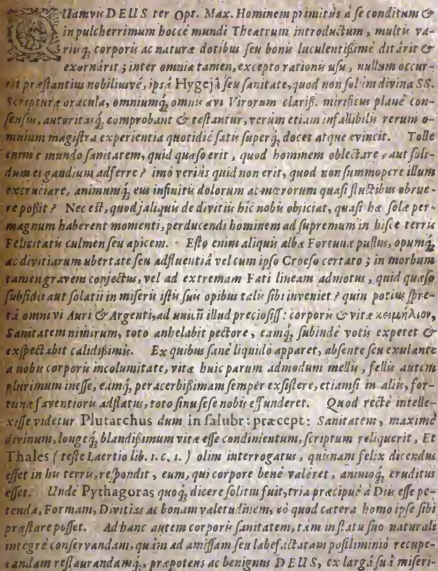 Uamvis DEUS ter Opt. Max. Hominem primitus à se conditum &
in pulcherrimum hocce mundi Theatrum introductum, multis va-
riisq; corporis ac naturæ dotibus seu bonis luculentißimè ditârit &
exornârit; inter omnia tamen, excepto rationis usu, nullum occur-
rit præstantius nobiliusvè, ipsâ Hygejâ seu sanitate, quod non sol in divina SS.
Scripturæ oracula, omniumq; omnis ævi Virorum clariß. mirificus planè con-
sensus, autoritasq; comprobant & testantur, verùm etiam infallibilis rerum o-
mnium magistra experientia quotidiè satis superq; docet atque evincit. Tolle
enim e mundo sanitatem, quid quæso erit, quod hominem oblectare, aut soli-
dum ei gaudium adferre? imò veriùs quid non erit, quod non summopere illum
excruciare, animumq; eius infinitis dolorum ac mœrorum quasi fluctibus obrue-
re poßit? Nec est, quod aliquis de divitiis hîc nobis objiciat, quasi hæ solæ per-
magnum haberent momenti, perducendi hominem ad supremum in hisce terris
Felicitatis culmen seu apicem. Esto enim aliquis albæ Fortunæ pullus, opumq;
ac divitiarum ubertate seu adfluentiâ vel cum ipso Crœso certato; in morbum
tamen gravem conjectus, vel ad extremam Fati lineam admotus, quid quæso
subsidii aut solatii in miseriis istis suis opibus talis sibi inveniet? quin potius spre-
tâ omni vi Auri & Argenti, ad unicũ illud preciosiß: corporis & vitæ κειμήλιον,
Sanitatem nimirum, toto anhelabit pectore, eamq; subinde votis expetet &
exspectabit calidißimis. Ex quibus sanè liquidò apparet, absente seu exulante
à nobis corporis incolumitate, vitæ huic parum admodum mellis, fellis autem
plurimum inesse, eamq; peracerbißimam semper existere, etiamsi in aliis, for-
tunæ faventioris adflatus, toto sinu sese nobis effunderet. Quod rectè intelle-
xisse videtur Plutarchus dum in salubr: præcept: Sanitatem, maximè
divinum, longeq; blandißimum vitæ esse condimentum, scriptum reliquerit, Et
Thales (teste Laertio lib. 1. c. 1.) olim interrogatus, quisnam felix dicendus
esset in his terris, respondit, eum, qui corpore benè valéret, animoq; eruditus
esset. Unde Pythagoras quoq; dicere solitus fuit, tria præcipuè à Diis esse pe-
tenda, Formam, Divitias ac bonam valetudinem, eò quod cætera homo ipse sibi
præstare posset. Ad hanc autem corporis sanitatem, tàm in statu suo naturali
integrè conservandam, quàm ad amissam seu labefactatam postliminiò recupe-
randam restaurandamq; præpotens ac benignus DEUS, ex largâ suâ miseri-